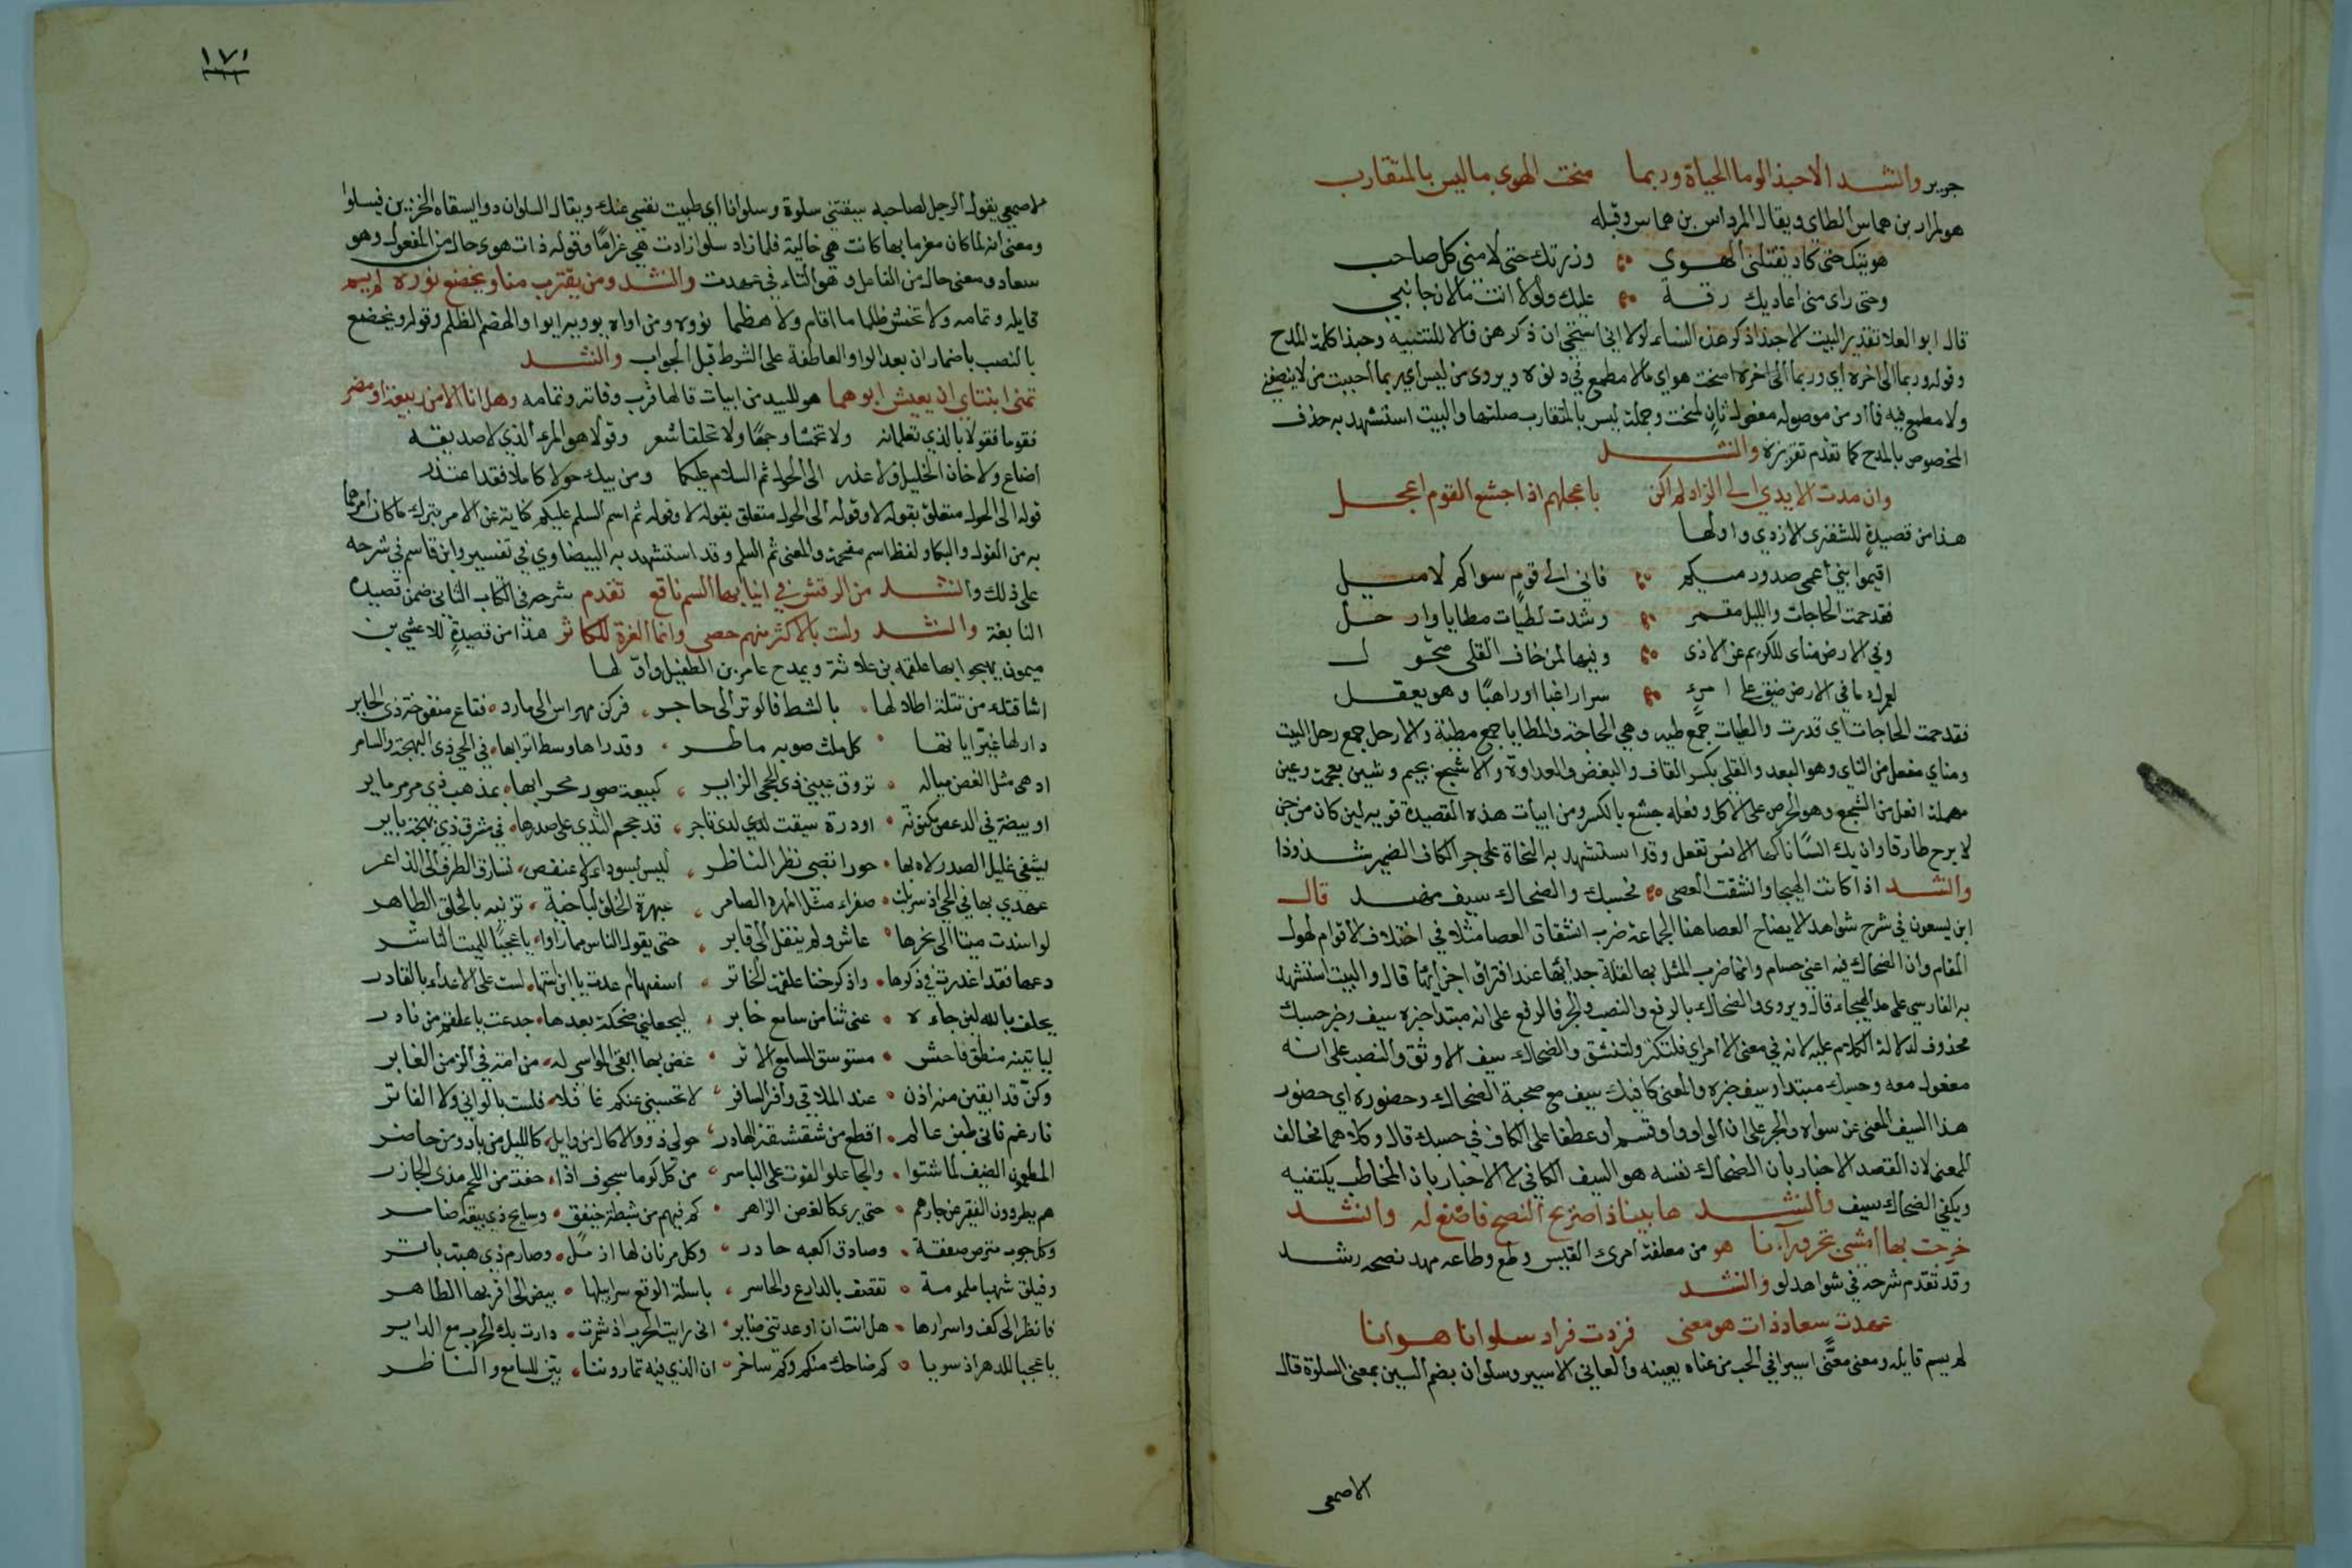 جرير وانشد الا حبذا لوما الحياة وربما منحت الهوى ما ليس بالمتقارب
هو لمراد بن هماس الطاى ويقال المرداس بن هماس وقبله
هويتك حتى كاد يقتلنى الهوى وزرتك حتى لامنى كل صاحب
وحتى راى منى اعاديك رقة عليك ولولا انت ما لان جانبي
قال ابو العلا تقدير البيت الا حبذا ذكر هذه النساء لولا انى استحى ان ذكرهن فالا للتنبيه وحبذا كلمة المدح
وقوله وربما الى اخره اى وربما الى اخره امنحت هواي ما لا مطمع في دنوه ويروى من ليس اي ربما احببت من لا ينصفني
ولا مطمع فيه فما او من موصوله مفعول ثانٍ لمنحت وجملة ليس بالمتقارب صلتها والبيت استشهد به حذف
المخصوص بالمدح كما تقدم تقريره وانشد
وان مدت الايدي الى الزاد لم اكن باعجلهم اذ اجشع القوم اعجل
هذا من قصيدةٍ للشنفرى الازدي واولها
اقيموا بني أمي صدور مطيكم فاني الى قومٍ سواكم لاميل
فقد حمت الحاجات والليل مقمر وشدت لطيات مطايا وارحل
وفي الارض مناى للكريم عن الاذى وفيها لمن خاف القلى متحول
لعمرك ما في الارض ضيق على امرءٍ سرا راغبا او راهبًا وهو يعقل
فقد حمت الحاجات اي قدرت والطيات جمع طيه وهي الحاجة والمطايا جمع مطية والارحل جمع رحل البيت
ومناي مفعل من الناي وهو البعد والقلى بكسر القاف والبغض والعداوة والاشجع بجيم وشين معجمة وعين
مهملة افعل من الشجع وهو الحرص على الاكل وفعله جشع بالكسر ومن ابيات هذه القصيدة قوله لين كان من جن
لابرح طارقا وان يك انسًا ما كها الانس تفعل وقد استشهد به النحاة على جر الكاف الضمير شذوذا
وانشد اذا كانت الهيجا وانشقت العصى فحسبك والضحاك سيف مهند قال
ابن يسعون في شرح شواهد الايضاح العصا هنا الجماعة ضرب انشقاق العصا مثلا في اختلاف الاقوام لهول
المقام وان الضحاك فيه اعنى حسام وانما ضرب المثل بها لقلة جدائها عند افتراق اجزائها قال والبيت استشهد
به الفارسي على مد الهيجاء قال ويروى والضحاك بالرفع والنصب والجر فالرفع على انه مبتدا خبره سيف وخبر حسبك
محذوف لدلالة الكلام عليه لانه في معنى الامر اي فلتكتف ولتثق والضحاك سيف الاوثق والنصب على انه
مفعول معه وحسبك مبتدا وسيف خبره والمعنى كافيك سيف مع صحبة الضحاك وحضوره اي حضور
هذا السيف المغنى عن سواه والجر على ان الواو واو قسم او عطفا على الكاف في حسبك قال وكلاهما مخالف
للمعنى لان القصد الاخبار بان الضحاك نفسه هو السيف الكافي لا الاخبار بان المخاطب يكتفيه
ويكفي الضحاك سيف وانشد ها بينا ذا صريح النصح فاصغ له وانشد
خرجت بها امشى تجر ورآءنا هو من معلقة امرئ القيس وطع وطاعه مهد نصحه رشد
وقد تقدم شرحه في شواهد لو وانشد
عهدت سعاد ذات هو معنى فزدت فزاد سلوانا هوانا
لم يسم قايله ومعنى معنَّى اسيرا في الحب من عناه يعينه والعاني الاسير وسلوان بضم السين بمعنى السلوة قال
الاصمعى
١٧١
الاصمعى يقول الرجل لصاحبه سقيتني سلوة وسلوانا اي طيبت نفسي عنك ويقال السلوان دوا يسقاه الحزين فيسلوا
ومعنى انه لما كان مغرما بها كانت هي خالية فلما زاد سلوا زادت هي غرامًا وقوله ذات هوى حال من المفعول وهو
سعاد ومعنى حال من الفاعل وهو التاء في عهدت وانشد ومن يقترب منا ويخضع نؤوه لم يسم
قايله وتمامه ولا تخش ظلما ما اقام ولا هضما نؤوه ومن اواه يوويه ايوا والهضم الظلم وقوله ويخضع
بالنصب باضمار ان بعد الواو العاطفة على الشرط قبل الجواب وانشد
تمنى ابنتاي ان يعيش ابوهما هو للبيد من ابيات قالها قرب وفاته وتمامه وهل انا الا من ربيعة او مضر
فقوما فقولا بالذي تعلمانه ولا تخمشا وجهًا ولا تحلقا شعر وقولا هو المرء الذي لا صديقه
اضاع ولا خان الخليل ولا غدر الى الحول ثم السلام عليكما ومن يبك حولا كاملا فقد اعتذر
قوله الى الحول متعلق بقوله لا وقوله الى الحول متعلق بقوله لا وقوله ثم اسم السلم عليكم كناية عن الامر بترك ما كان امرهما
به من القول والبكاو لفظ اسم مقحمة والمعنى ثم السلم وقد استشهد به البيضاوي في تفسير وابن قاسم في شرحه
على ذلك وانشد من الرقش في انيابها السم ناقع تقدم شرحه في الكتاب الثاني ضمن قصيدة
النابغة وانشد ولست بالاكثر منهم حصى وانما العزة للكاثر هذا من قصيدةٍ للاعشى بن
ميمون يهجوا بها علقمه بن علاثة ويمدح عامر بن الطفيل واوّلها
اشاقتك من قتلة اطلالها بالشط فالوتر الى حاجر فركن مهراس الى مارد فقاع منفوحة ذى الحاير
دار لها غيّر اياتها كل ملث صوبه ماطر وقد راها وسط اترابها في الحي ذي البهجة والسامر
اذ هى مثل الغصن مياله تروق عيني ذي الحجى الزاير كبيعة صور محرابها بمذهب في مرمر ماير
او بيضة في الدعص مكنونة او درة سيقت لدى تاجر قد حجم الثدى على صدرها في مشرق ذي بهجة باير
يشفى غليل الصدر لاه بها حورا تضبى نظر الناظر ليس بسوداء ولا عنفص تسارق الطرف الى الذاعر
عهدي بها في الحي اذ سربلت صفراء مثل المهرة الضامر عبهرة الخلق لباخية تزينه بالخلق الطاهر
لو اسندت ميتا الى نحرها عاش ولم ينقل الى قابر حتى يقول الناس مما راوا يا عجبًا للميت الناشر
دعها فقد اعذرت في ذكرها واذكر خنا علقمة الخاتر اسفها لست على الاعداء بالقادر
يحلف بالله لين جاءه عنى ثنا من سامع خابر ليجعلنى ضحكة بعدها جدعت يا علقم من نادر
لياتينه منطق فاحش مستوسق للسامع الاثر عض بما ابقى المواسي له من امه في الزمن الغابر
وكنّ قد ابقين منه اذن عند الملاقى وافر السافر لا تحسبنى عنكم غافلا فلست بالوانى ولا الفاتر
فارغم فانى طبن عالم اقطع من شقشقة الهادر حولى ذوو الاكال من وايل كالليل من باد ومن حاضر
المطعمون الضيف لما شتوا والجاعلو القوت على الياسر من كل كوما سحوف اذا حفت من اللحم مدى الجازر
هم يطردون الفقر عن جارهم حتى يرى كالغصن الزاهر كم فيهم من شطبة خيفق وسابح ذي ميعة ضامر
وكل جوب مترص صنعه وصادق اكعبه حادر وكل مرنان لها ازمل وصارم ذي هبة باتر
وفيلق شهبا ملمومة تقصف بالدارع والحاسر باسلة الوقع سرابيلها بيض الى اقرابها الظاهر
فانظر الى كف واسرارها هل انت ان اوعدتنى ضاير انى رايت الحرب اذ شمرت دارت بك الحرب مع الداير
يا عجبا للدهر اذ سويا كم ضاحك منكم وكم ساخر ان الذي فيه تماريتما بيّن للسامع والناظر